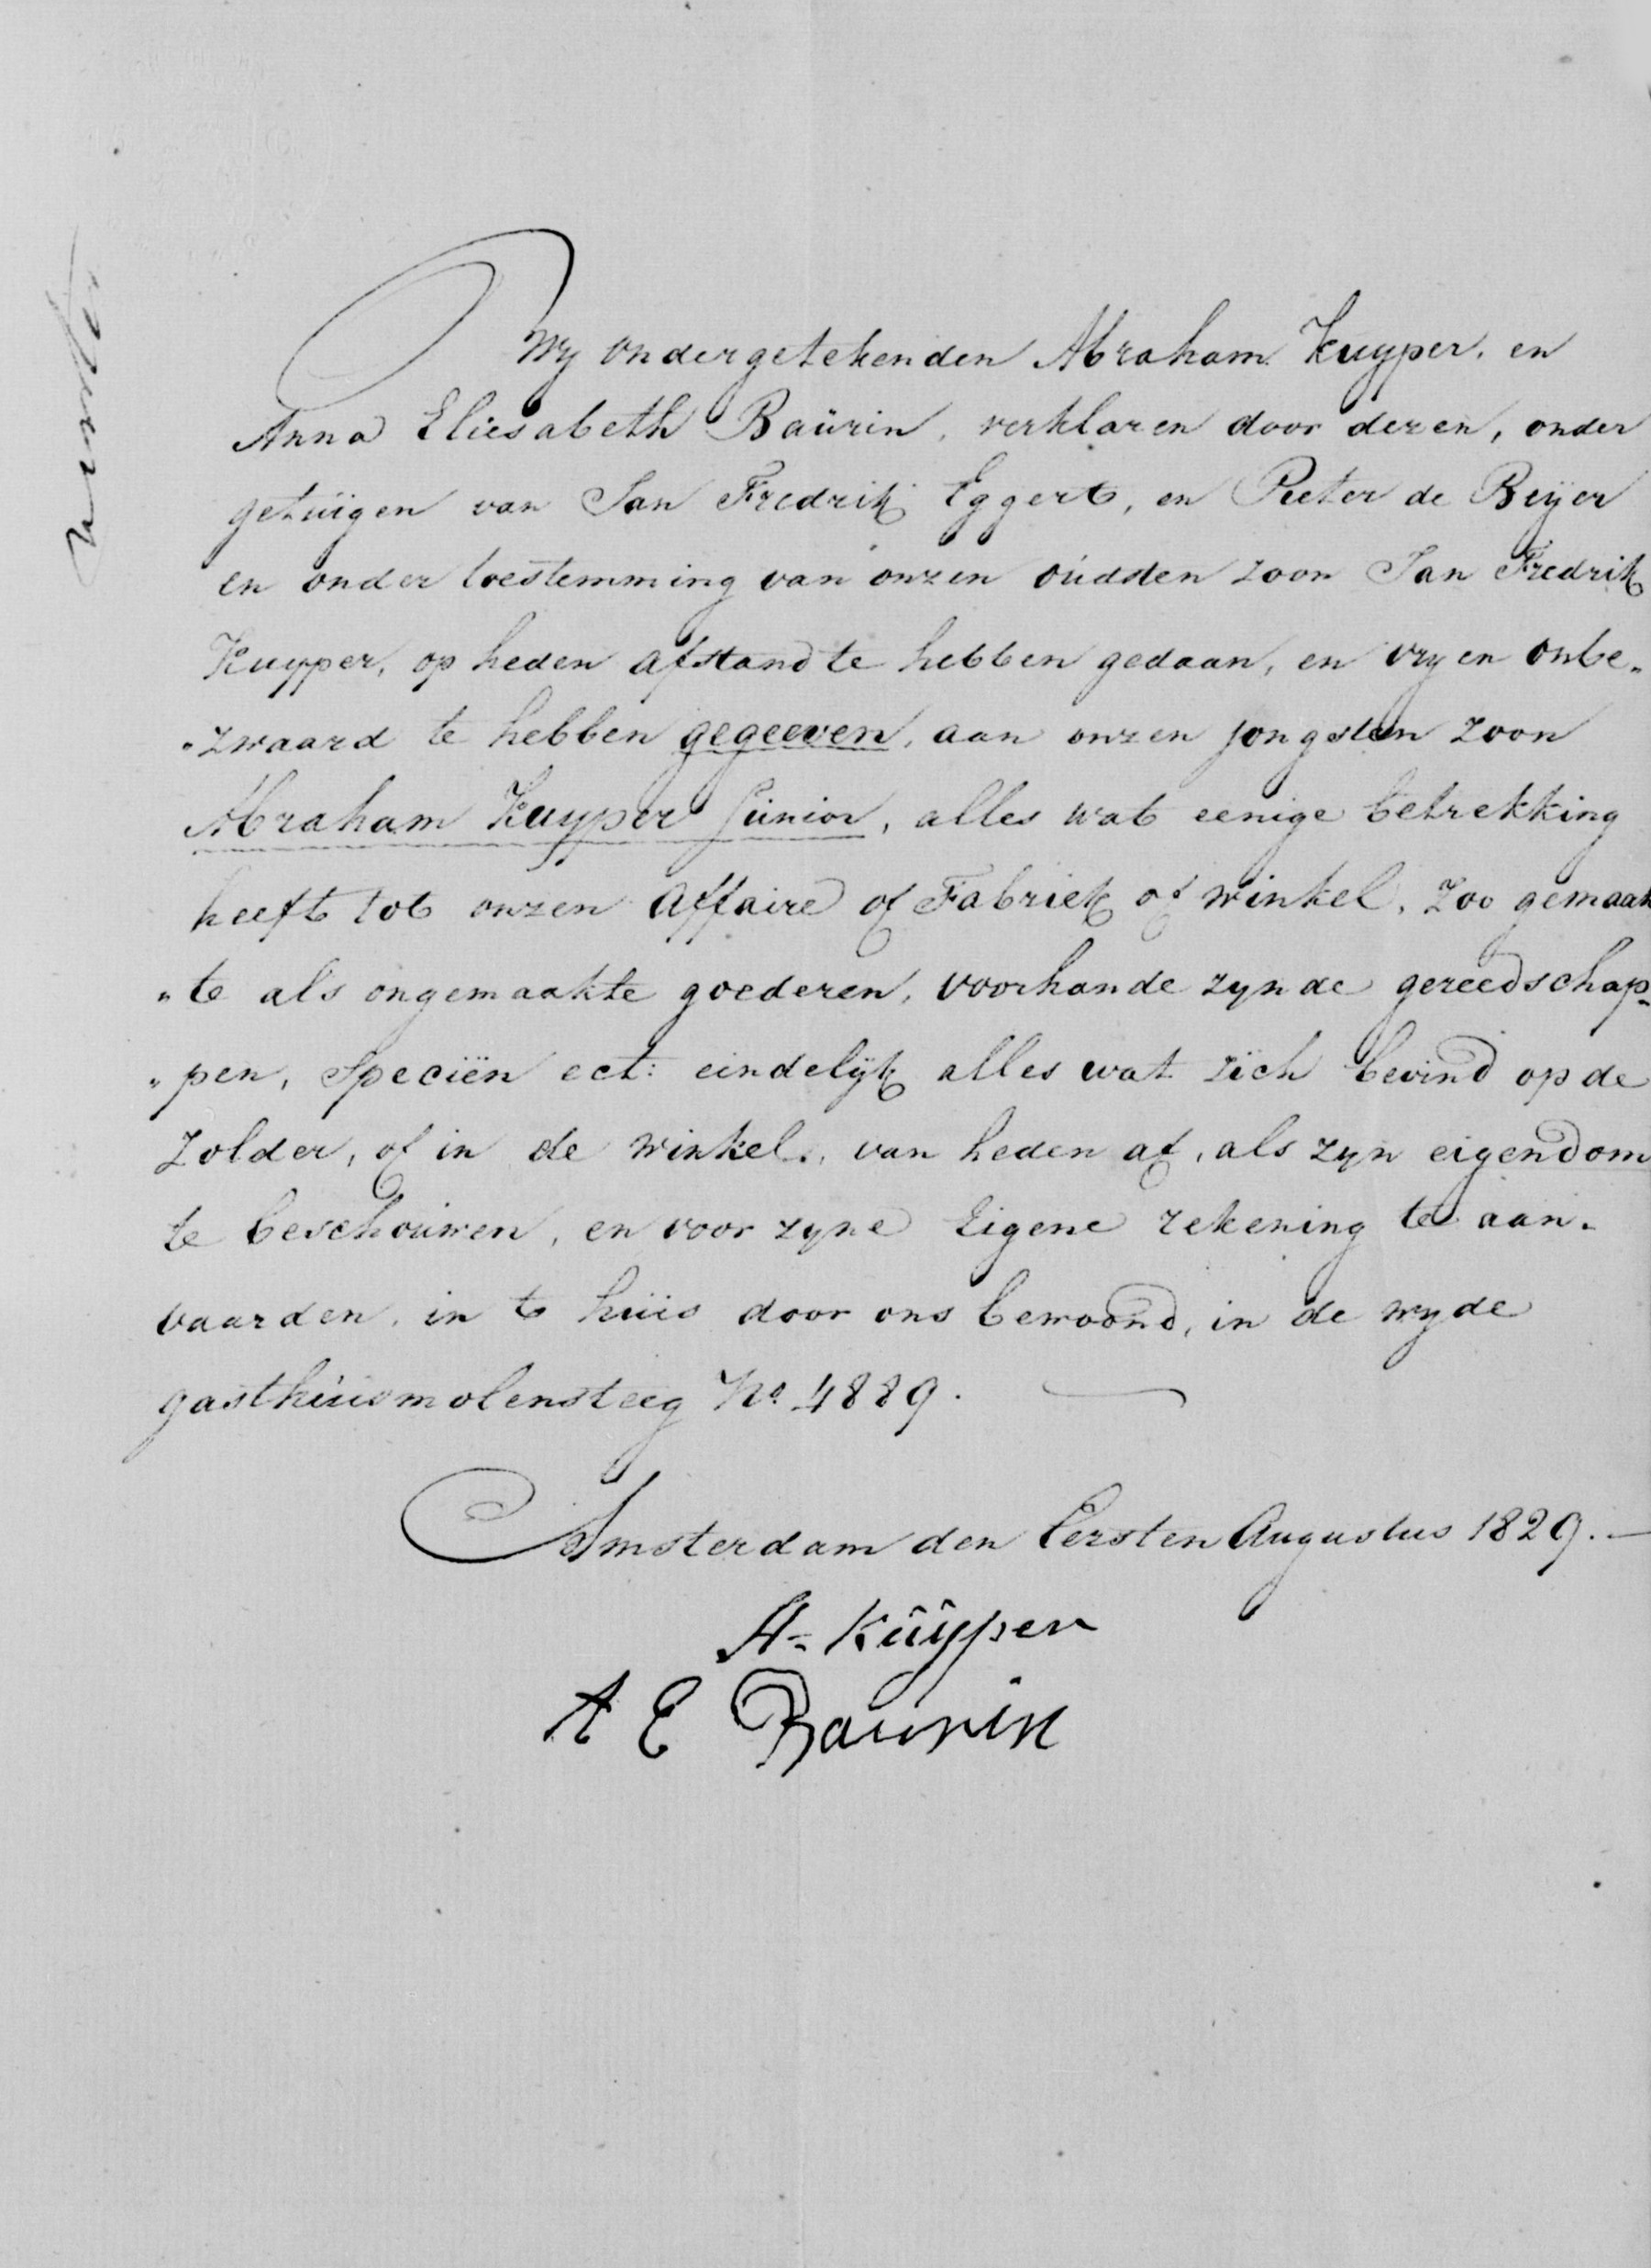 Wy ondergetekenden Abraham Kuyper, en
Anna Eliesabeth Baürin, verklaren door dezen, onder
getuigen van Jan Fredrik Eggert, en Pieter de Beijer
en onder toestemming van onzen oudsten zoon Jan Fredrik
Kuyper, op heden afstand te hebben gedaan, en vry en onbe„
„zwaard te hebben gegeeven, aan onzen jongsten zoon
Abraham Kuyper Junior, alles wat eenige betrekking
heeft tot onzen affaire of Fabriek of winkel, Zoo gemaak
„te als ongemaakte goederen, voorhande zynde gereedschap„
„pen, Speciën ect: eindelijk alles wat zich bevind op de
Zolder, of in de winkel, van heden af, als zyn eigendom
te beschouwen, en voor zyne Eigene rekening te aan„
vaarden, in t huis door ons bewoond, in de wyde
gasthuismolensteeg No. 4889.
Amsterdam den Eersten Augustus 1829.—
A= Kûyper
A E Baurin